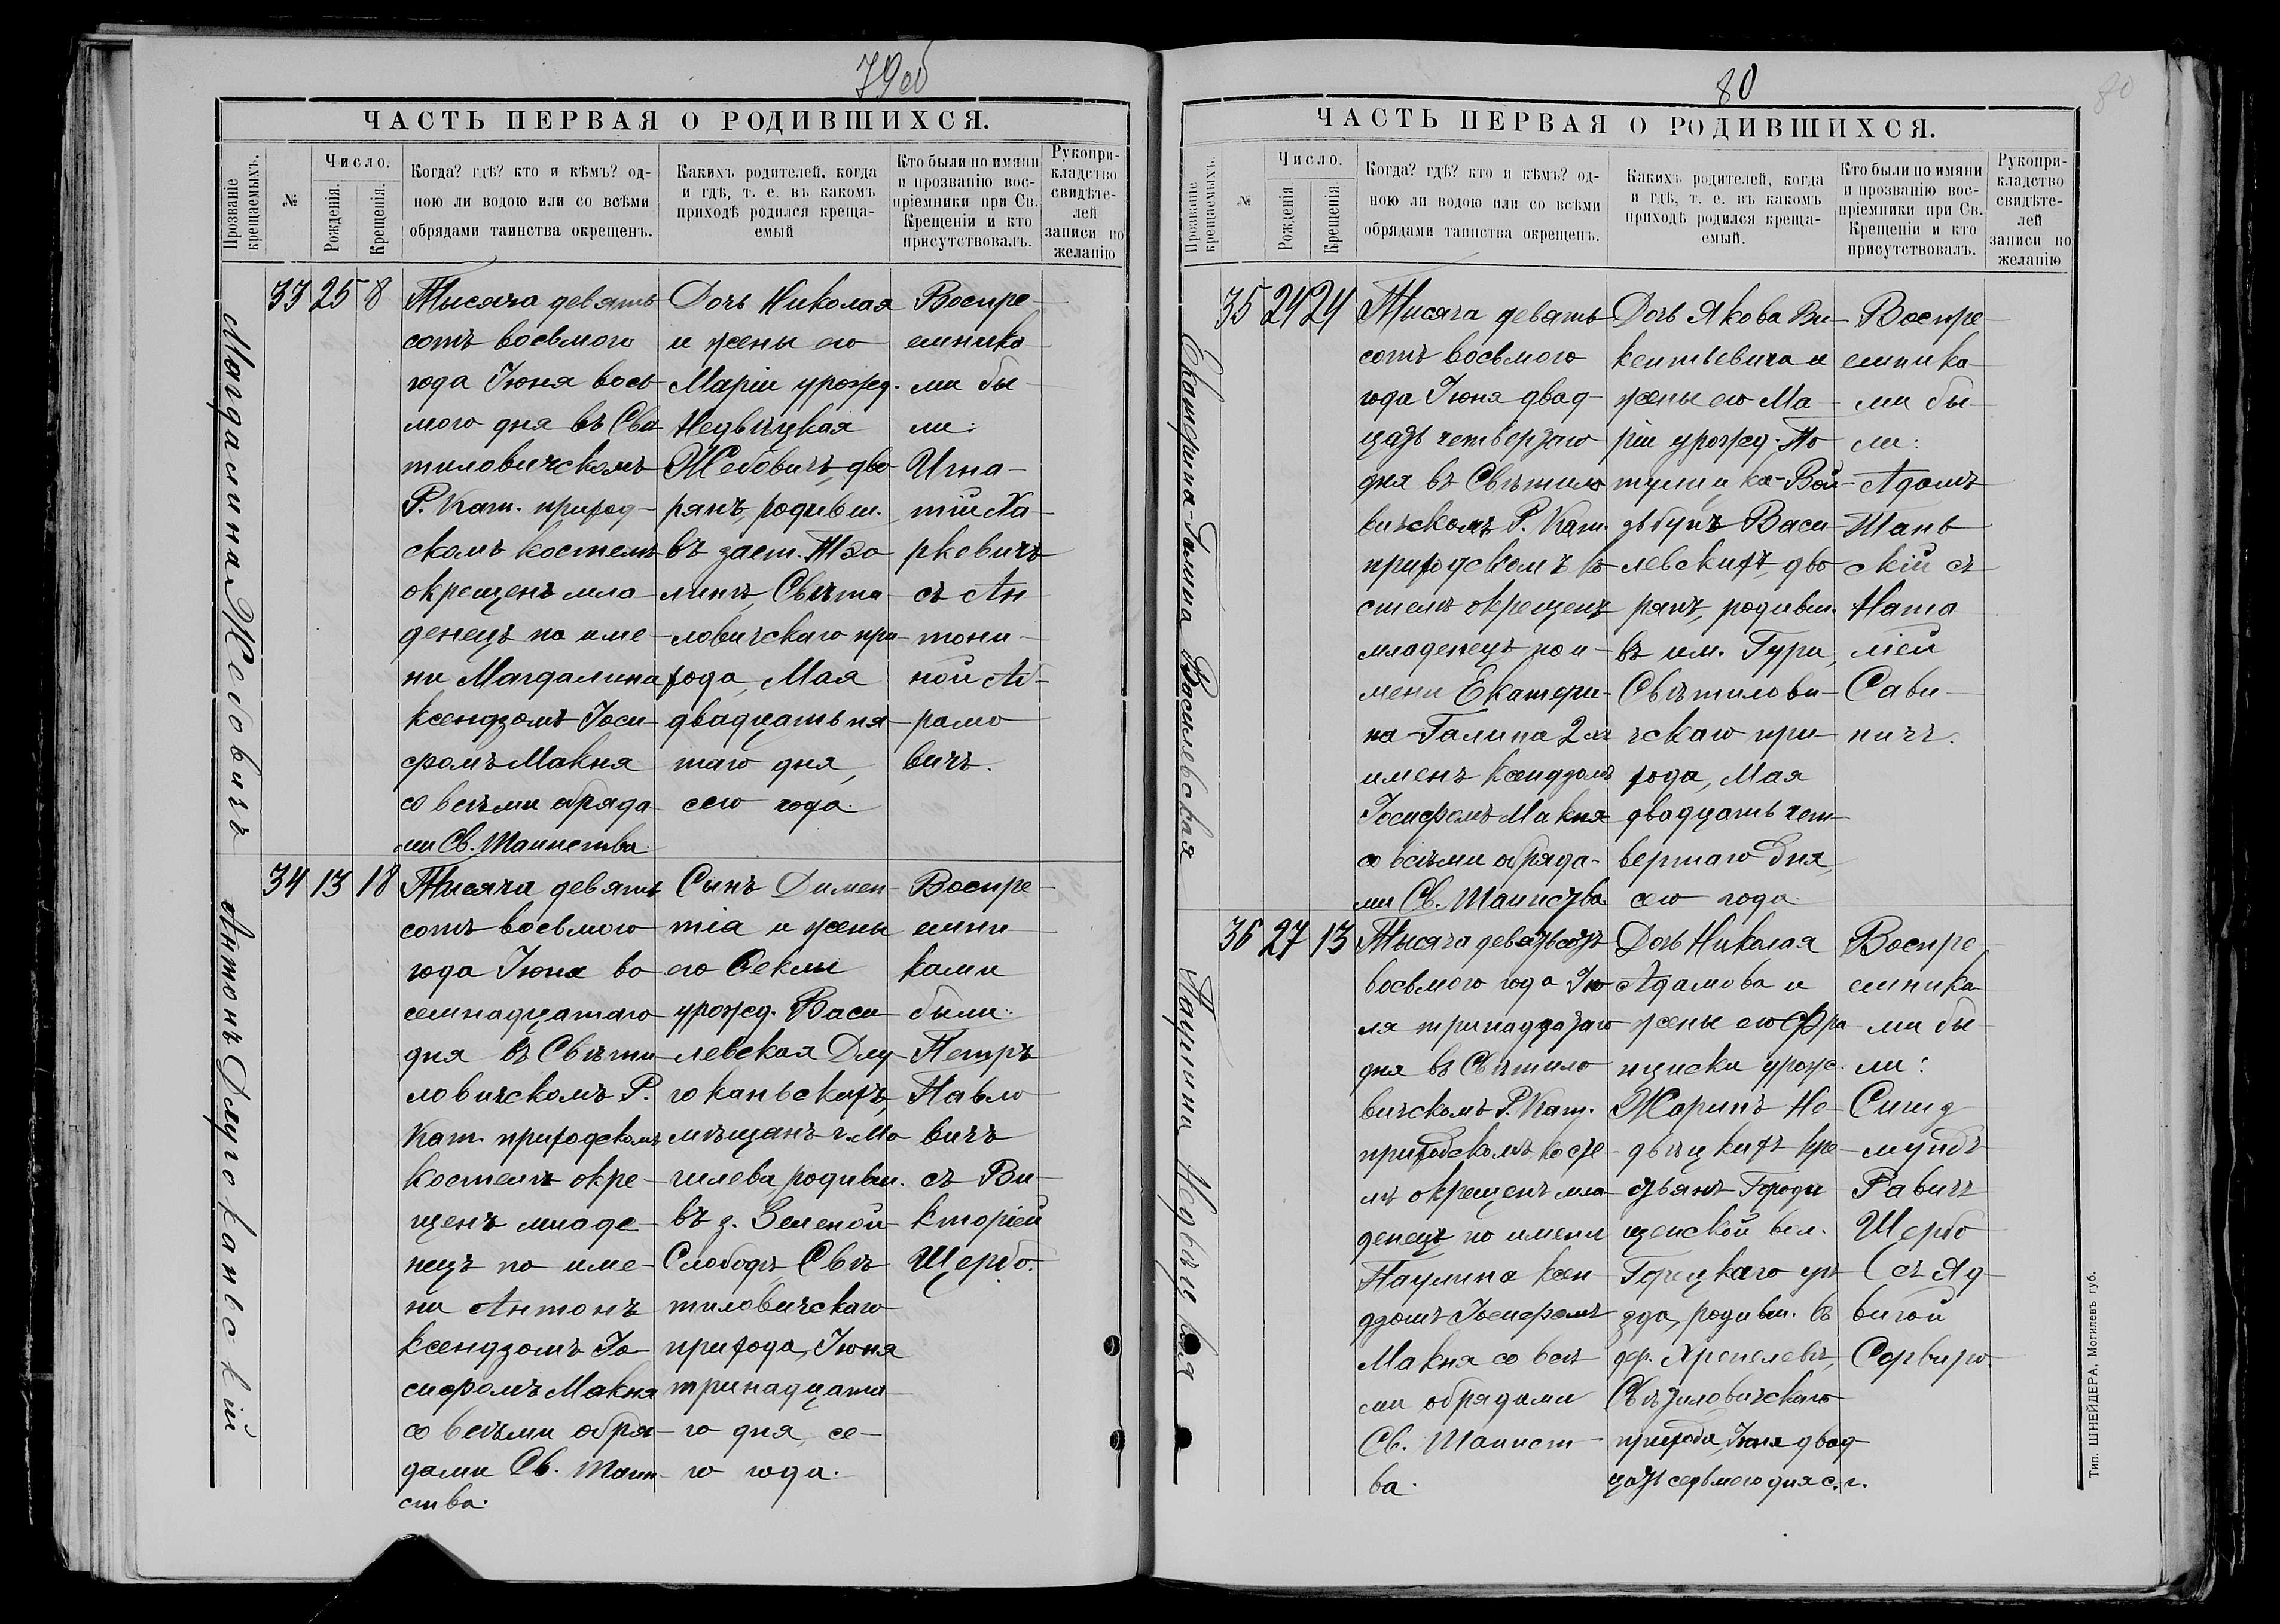 79об
ЧАСТЬ ПЕРВАЯ О РОДИВШИХСЯ.
Прозваніе крещаемыхъ.
№
Число.
Рожденія.
Крещенія.
Когда? гдѣ? кто и кѣмъ? од-
ною ли водою или со всѣми
обрядами таинства окрещенъ.
Какихъ родителей, когда
и гдѣ, т. е. въ какомъ
приходѣ родился креща-
емый
Кто были по имяни
и прозванію вос-
пріемники при Св.
Крещеніи и кто
присутствовалъ.
Рукопри-
кладство
свидѣте-
лей
записи по
желанію
Магдалина Жебовичъ
33 25 8
Тысяча девять
сотъ восьмого
года Іюня вось
мого дня въ Свѣ
тиловичскомъ
Р. Кат. приход-
скомъ костелѣ
окрещенъ мла
денецъ по име-
ни Магдалина
ксендзомъ Іоси-
фомъ Макня
со всѣми обряда
ми Св. Таинства.
Дочь Николая
и жены его
Маріи урожд.
Недвѣцкая
Жебовичъ, дво
рянъ, родивш.
въ заст.
Свѣти
ловичскаго при-
хода, Мая
двадцать пя
таго дня,
сего года.
Воспре-
емника
ми бы-
ли:
Игна-
тій Ха-
ркевичъ
съ Ан
тони-
ной Аб-
рамо
вичъ.
Антонъ Длугоканьскій
34 13 18
Тысяча девять
сотъ восьмого
года Іюня во
семнадцатаго
дня въ Свѣти
ловичскомъ Р.
Кат. приходскомъ
костелѣ окре-
щенъ младе-
нецъ по име-
ни Антонъ
ксендзомъ Іо-
сифомъ Макня
со всѣми обря-
дами Св. Таин-
ства.
Сынъ Димен-
тіа и жены
его Феклы
урожд. Васи
левская Длу-
гоканьскихъ,
мѣщанъ г. Мо
гилева, родивш.
въ д. Зеленой
Слободѣ, Свѣ
тиловичскаго
прихода, Іюня
тринадцата-
го дня, се-
го года.
Воспре-
емни
ками
были:
Петръ
Павло
вичъ
съ Ви-
кторіей
Щербо.
80
80
ЧАСТЬ ПЕРВАЯ О РОДИВШИХСЯ.
Прозваніе крещаемыхъ.
№
Число.
Рожденія.
Крещенія
Когда? гдѣ? кто и кѣмъ? од-
ною ли водою или со всѣми
обрядами таинства окрещенъ.
Какихъ родителей, когда
и гдѣ, т. е. въ какомъ
приходѣ родился креща-
емый.
Кто были по имяни
и прозванію вос-
пріемники при Св.
Крещеніи и кто
присутствовалъ.
Рукопри-
кладство
свидѣте-
лей
записи по
желанію
Екатерина-Галина Василевская
35 24 24
Тысяча девять
сотъ восьмого
года Іюня двад-
цать четвертаго
дня въ Свѣтило
вичскомъ Р. Кат.
приходскомъ ко
стелѣ окрещенъ
младенецъ по и-
мени Екатери-
на-Галина 2мя
именъ ксендзомъ
Іосифомъ Макня
со всѣми обряда-
ми Св. Таинства.
Дочь Якова Ви-
кентьевича и
жены его Ма-
ріи урожд.
Васи
левскихъ, дво
рянъ, родивш.
въ им. Гури,
Свѣтилови-
чскаго при-
хода, Мая
двадцать чет-
вертаго дня,
сего года.
Воспре-
емника-
ми бы-
ли:
Адамъ
Шань
скій съ
Ната
ліей
Сави-
ничъ.
Паулина Недвѣцкая
36 27 13
Тысяча девятьсотъ
восьмого года Ію-
ля тринадцатаго
дня въ Свѣтило
вичскомъ Р. Кат.
приходскомъ косте-
лѣ окрещенъ мла-
денецъ по имени
Паулина ксен-
дзомъ Іосифомъ
Макня со всѣ
ми обрядами
Св. Таинст-
ва.
Дочь Николая
Адамова и
жены его Фра-
нциски урожд.
Жоринъ Не-
двѣцкихъ кре-
стьянъ Городи
щенской вол.
Горецкаго уѣ
зда, родивш. въ
дер. Хрепелевѣ,
Свѣтиловичскаго
прихода, Іюня двад
цать седьмого дня с. г.
Воспре
емника
ми бы
ли:
Сигиз
мундъ
Равичъ
Щербо
съ Яд-
вигой
Сервиро.
Тип. ШНЕЙДЕРА, Могилевъ губ.